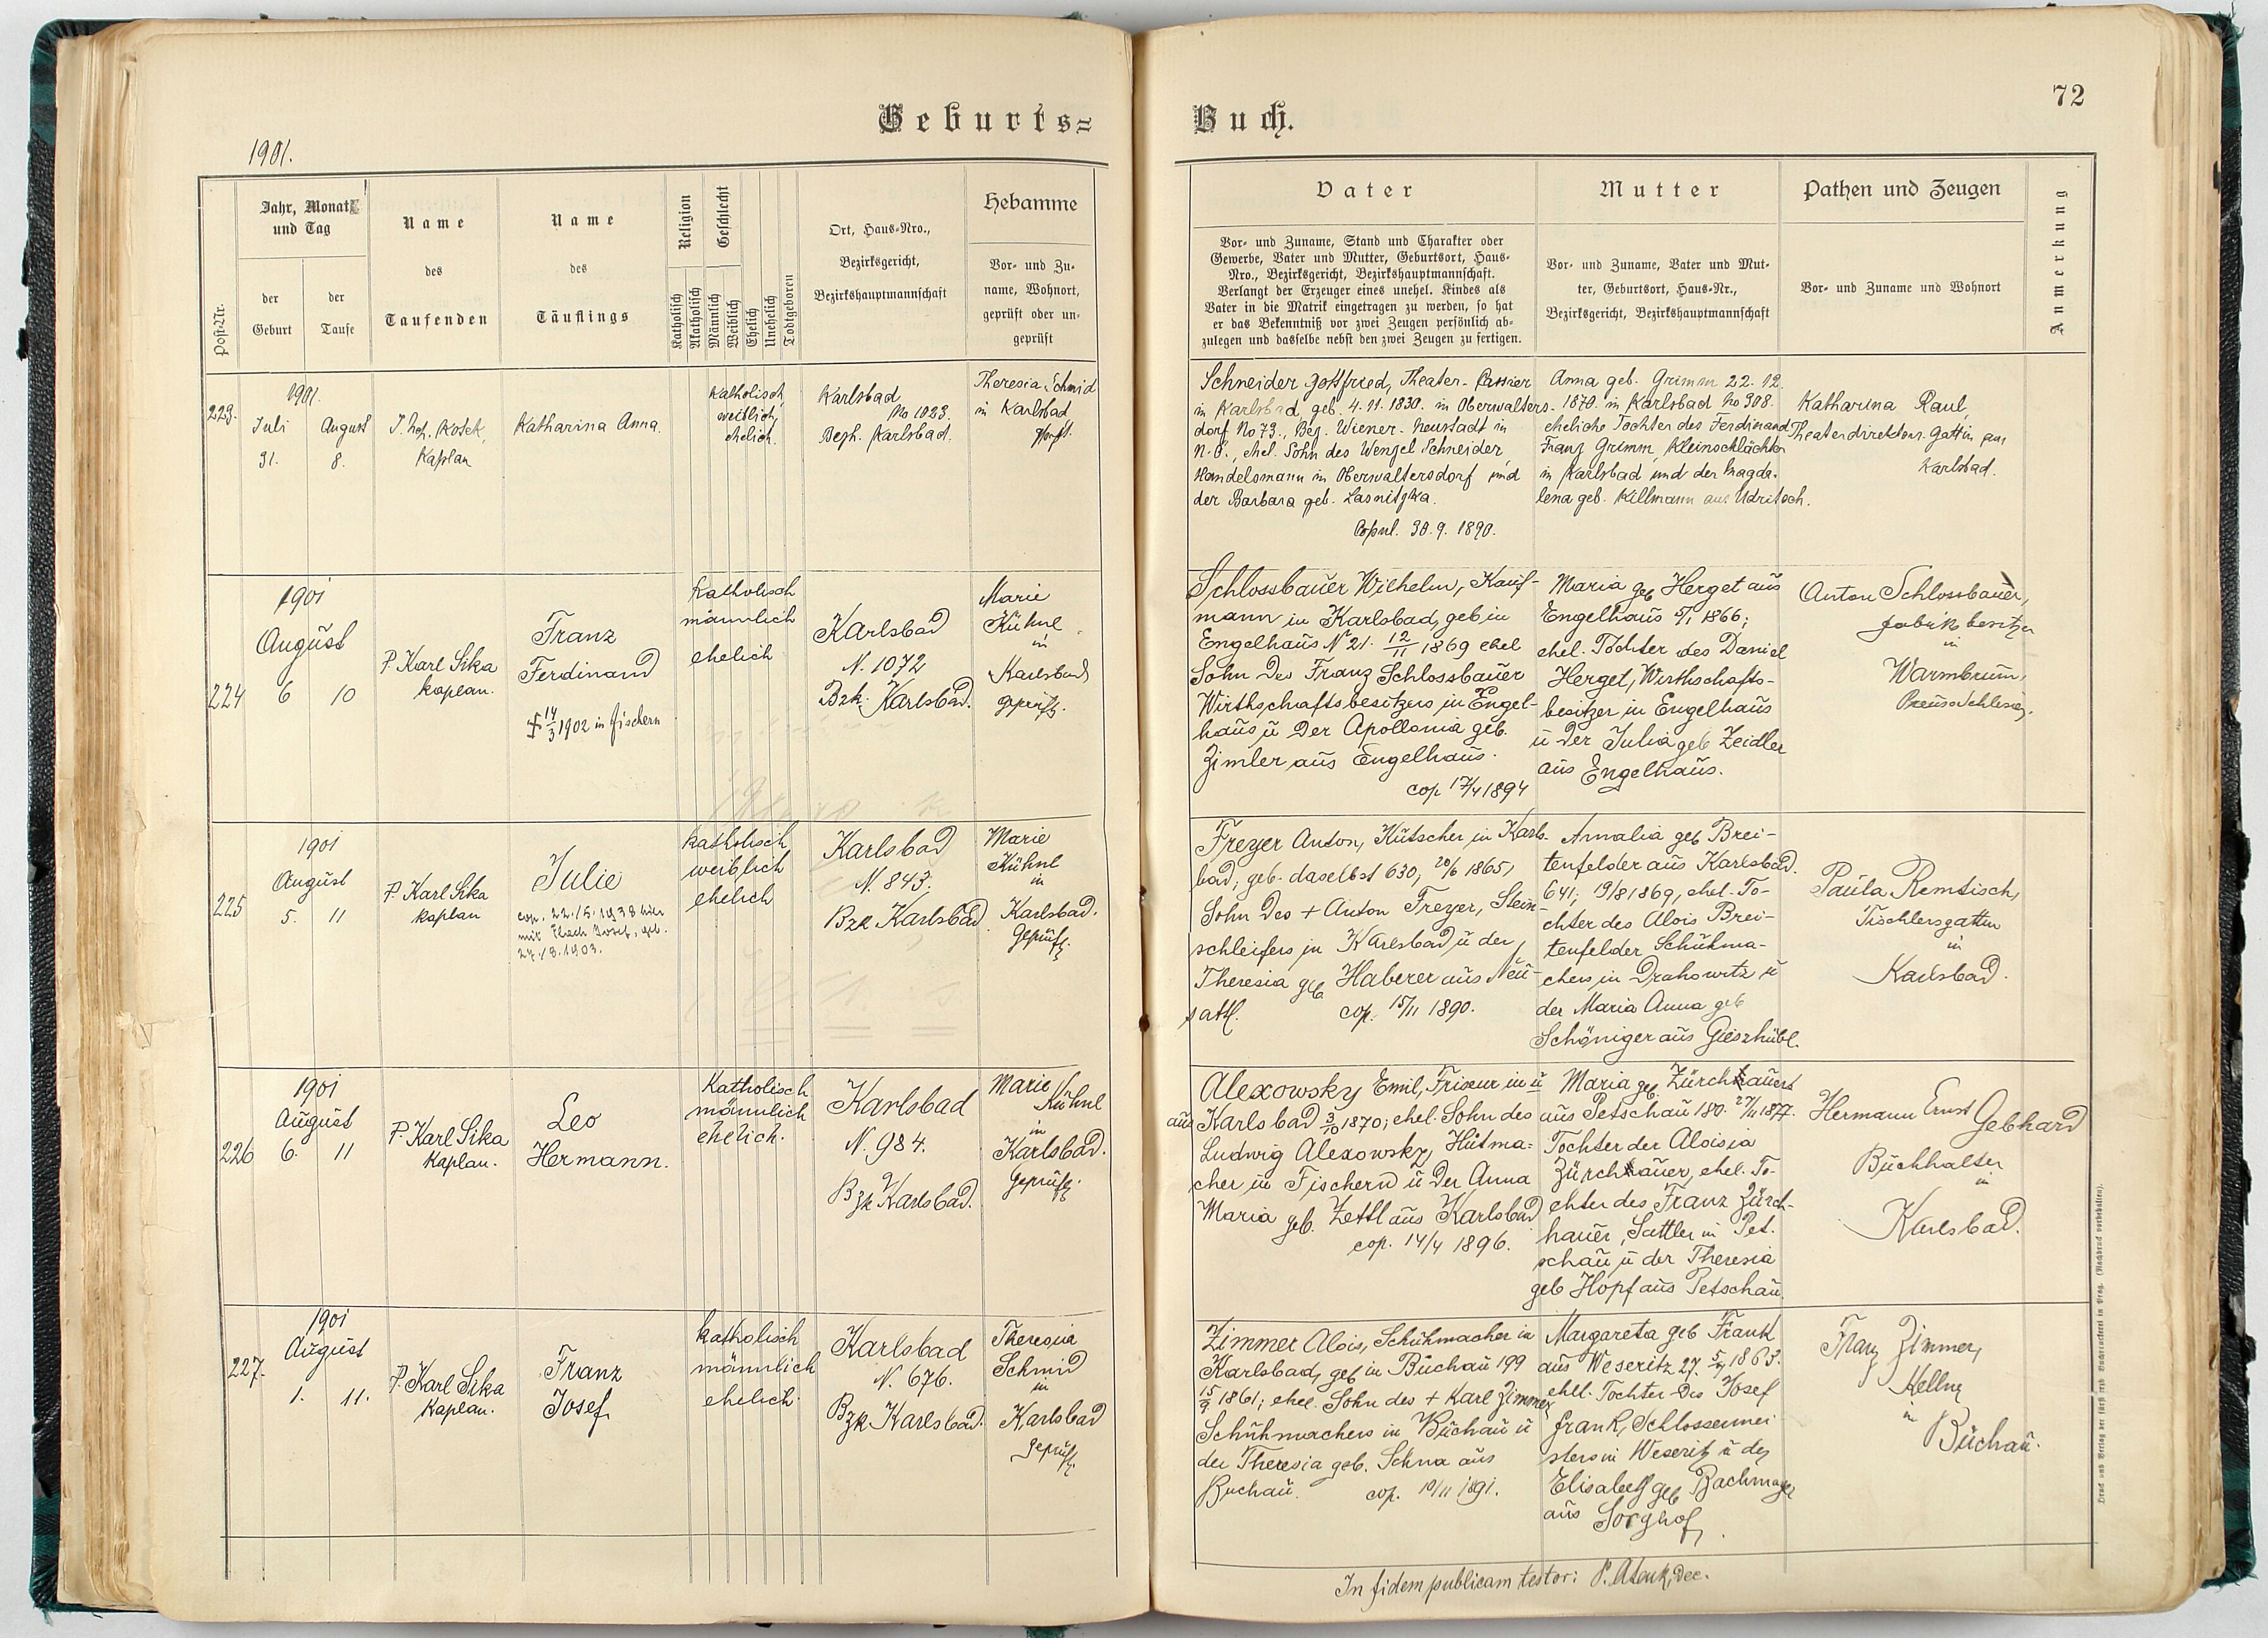 Geburts=
1901.
Post-Nr.
Jahr, Monat
und Tag
der
Geburt
der
Taufe
Name
des
Taufenden
Name
des
Täuflings
Religion
Katholisch
Akatholisch
Geschlecht
Männlich
Weiblich
Ehelich
Unehelich
Todtgeboren
Ort, Haus-Nro.,
Bezirksgericht,
Bezirkshauptmannschaft
Hebamme
Vor- und Zu-
name, Wohnort,
geprüft oder un-
geprüft
223.
1901.
Juli
31.
August
8.
Kaplan
Katharina Anna.
Katholisch,
weiblich,
ehelich.
Karlsbad
No 1023.
Bezh. Karlsbad.
Theresia Schmid
in Karlsbad
224
1901
August
6
10
P. Karl Sika
kaplan.
Franz
Ferdinand
14/3 1902 in Fischern
katholisch
männlich
ehelich
Karlsbad
N. 1072
Bzk. Karlsbad.
Marie
Kühnl
in
Karlsbad
geprüft.
225
1901
August
5.
11
P. Karl Sika
kaplan
Julie
cop. 22./5. 1938 hier
mit Josef, geb.
katholisch
weiblich
ehelich
Karlsbad
N. 843.
Bzk Karlsbad.
Marie
Kühnl
in
Karlsbad.
Geprüft.
226
1901
August
6.
11
P. Karl Sika
Kaplan.
Leo
Hermann.
Katholisch
männlich
ehelich.
Karlsbad
N. 984.
Bzk Karlsbad.
Marie
Kühnl
in
Karlsbad.
Geprüft.
227.
1901
August
1.
11.
P. Karl Sika
Kaplan.
Franz
Josef
katholisch
männlich
ehelich.
Karlsbad
N. 676.
Bzk Karlsbad.
Theresia
Schmid
in
Karlsbad
geprüft.
Buch.
72
Vater
Vor- und Zuname, Stand und Charakter oder
Gewerbe, Vater und Mutter, Geburtsort, Haus-
Nro., Bezirksgericht, Bezirkshauptmannschaft.
Verlangt der Erzeuger eines unehel. Kindes als
Vater in die Matrik eingetragen zu werden, so hat
er das Bekenntniß vor zwei Zeugen persönlich ab-
zulegen und dasselbe nebst den zwei Zeugen zu fertigen.
Mutter
Vor- und Zuname, Vater und Mut-
ter, Geburtsort, Haus-Nr.,
Bezirksgericht, Bezirkshauptmannschaft
Pathen und Zeugen
Vor- und Zuname und Wohnort
Anmerkung
Schneider Gottfried, Theater-Cassier
in Karlsbad, geb. 4.11.1830. in Oberwalters-
dorf No 73., Bez. Wiener-Neustadt in
N.Ö., ehel. Sohn des Wenzel Schneider,
Handelsmann in Oberwaltersdorf und
der Barbara geb. Lasnitzka.
Copul. 30.9.1890.
Anna geb. Grimm 22.12.
1870. in Karlsbad No 308.
eheliche Tochter des Ferdinand
Franz Grimm, Kleinschlächter
in Karlsbad und der Magda-
lena geb. Killmann aus Udritsch.
Katharina Raul,
Theaterdirektors-Gattin aus
Karlsbad.
Schlossbauer Wilhelm, Kauf-
mann in Karlsbad, geb in
Engelhaus N 21. 12/11 1869 ehel
Sohn des Franz Schlossbauer
Wirthschaftsbesitzers in Engel-
haus u der Apollonia geb.
Zimler aus Engelhaus.
cop 17/4 1894
Maria geb Herget aus
Engelhaus 5/1 1866;
ehel. Tochter des Daniel
Herget, Wirthschafts-
besitzer in Engelhaus
u der Julia geb Zeidler
aus Engelhaus.
Anton Schlossbauer,
Fabriksbesitzer
in
Warmbrunn,
Preuss Schlesien.
Freyer Anton, Kutscher in Karls-
bad, geb. daselbst 630, 20/6 1865,
Sohn des + Anton Freyer, Stein-
schleifers in Karlsbad u der
Theresia geb Haberer aus Neu-
sattl. cop. 15/11 1890.
Amalia geb Brei-
tenfelder aus Karlsbad.
641; 19/8 1869, ehel. To-
chter des Alois Brei-
tenfelder Schuhma-
chers in Drahowitz u
der Maria Anna geb
Schöniger aus Gieszhübl.
Paula Remtisch,
Tischlersgattin
in
Karlsbad.
Alexowsky Emil, Friseur in u
aus Karlsbad 3/10 1870; ehel. Sohn des
Ludwig Alexowsky, Hutma-
cher in Fischern u der Anna
Maria geb. Zettl aus Karlsbad
cop. 14/4 1896.
Maria geb. Zürchauer
aus Petschau 180. 27/11 1877.
Tochter der Aloisia
Zürchauer, ehel. To-
chter des Franz Zürch-
hauer, Sattler in Pet-
schau u der Theresia
geb Hopf aus Petschau.
Hermann Ernst Gebhard
Buchhalter
in
Karlsbad.
Zimmer Alois, Schuhmacher in
Karlsbad, geb in Buchau 199
15/9 1861; ehel. Sohn des + Karl Zimmer
Schuhmachers in Buchau u
der Theresia geb. Schna aus
Buchau. cop. 10/11 1891.
Margareta geb Frank
aus Weseritz 27. 1863.
ehel. Tochter des Josef
Frank, Schlossermei-
sters in Weseritz u der
Elisabeth geb Bachmayer
aus Sorghof.
Franz Zimmer,
Kellner
in
Buchau.
In fidem publicam testor:
Druck und Verlag der fürst erzb Buchdruckerei in Prag. (Nachdruck vorbehalten).